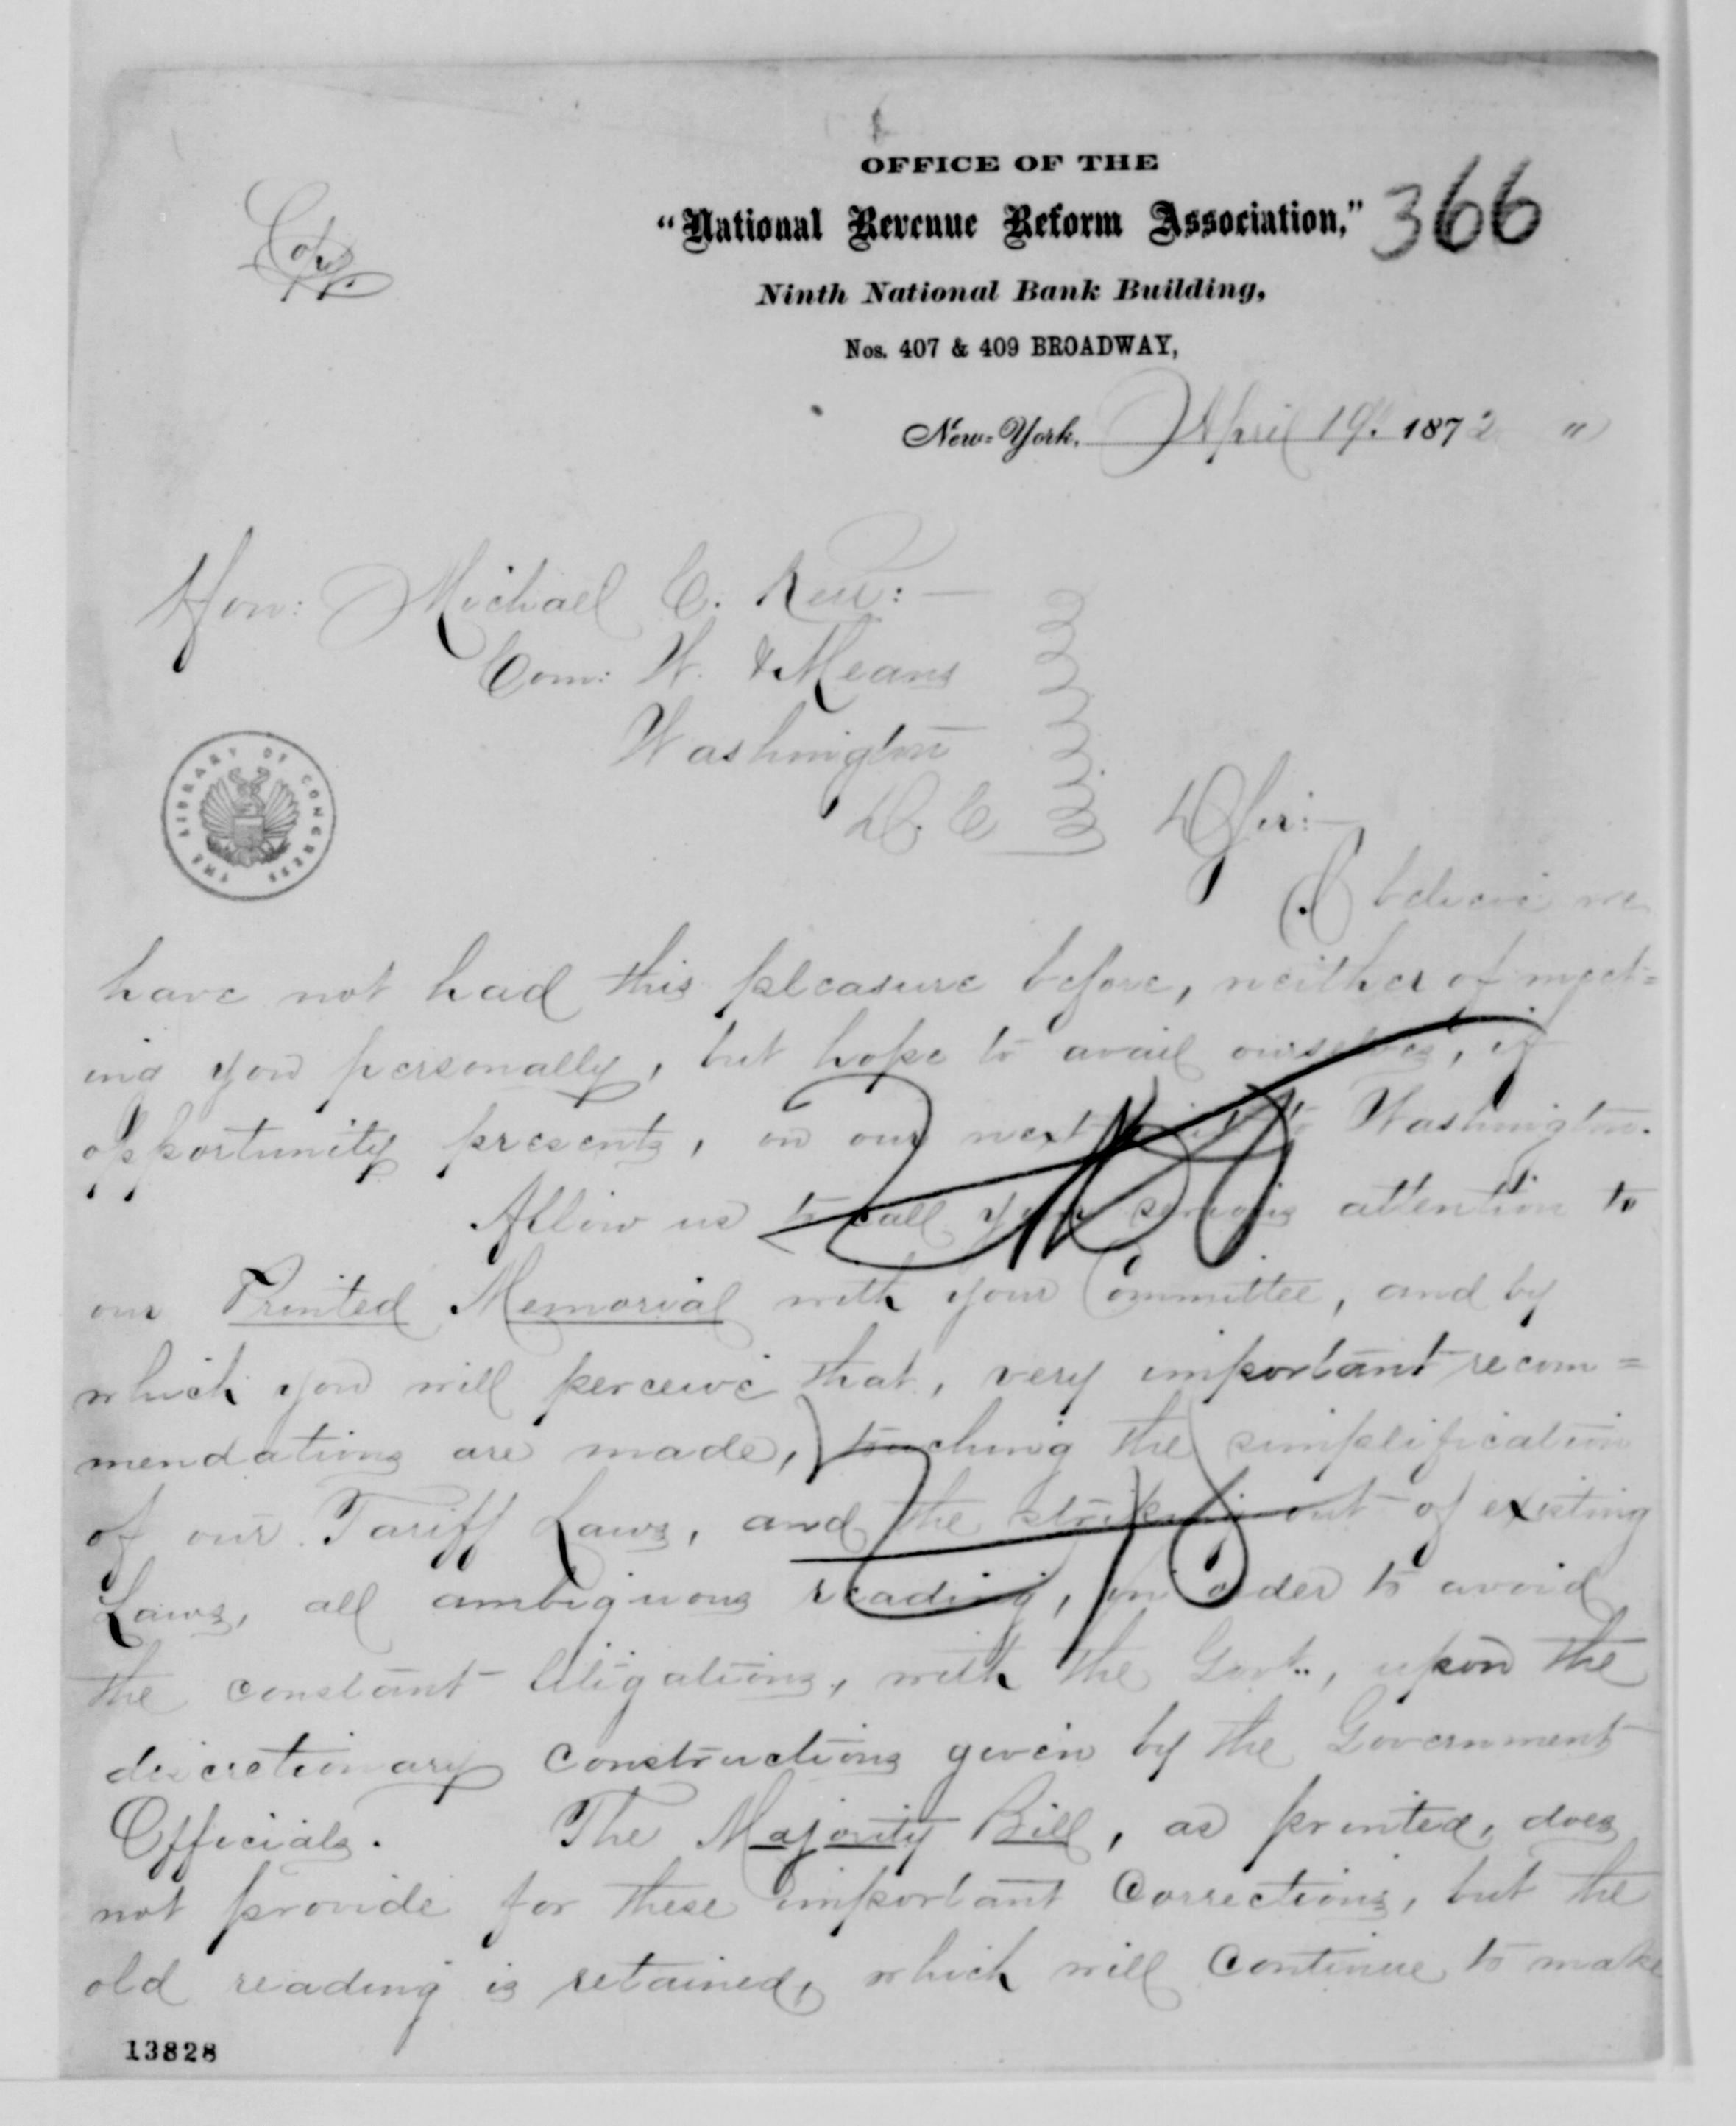 OFFICE OF THE
"National Revenue Reform Association," 366
Copy
Ninth National Bank Building,
Nos. 407 & 409 BROADWAY,
New-York, April 19. 1872 "
Hon: Michael C. Kerr:—
Com: W. & Means
Washington
D. C D Sir:—
THE LIBRARY OF CONGRESS
I believe we
have not had this pleasure before, neither of meet=
ing you personally, but hope to avail ourselves, if
opportunity presents, on our next visit to Washington.
Allow us to call your serious attention to
our Printed Memorial with your Committee, and by
which you will perceive that, very important recom=
mendations are made, touching the simplification
of our Tariff Laws, and the striking out of existing
Laws, all ambiguous reading, in order to avoid
the constant litigations, with the Govt., upon the
discretionary constructions given by the Government
Officials. The Majority Bill, as printed, does
not provide for these important Corrections, but the
old reading is retained, which will Continue to make
13828